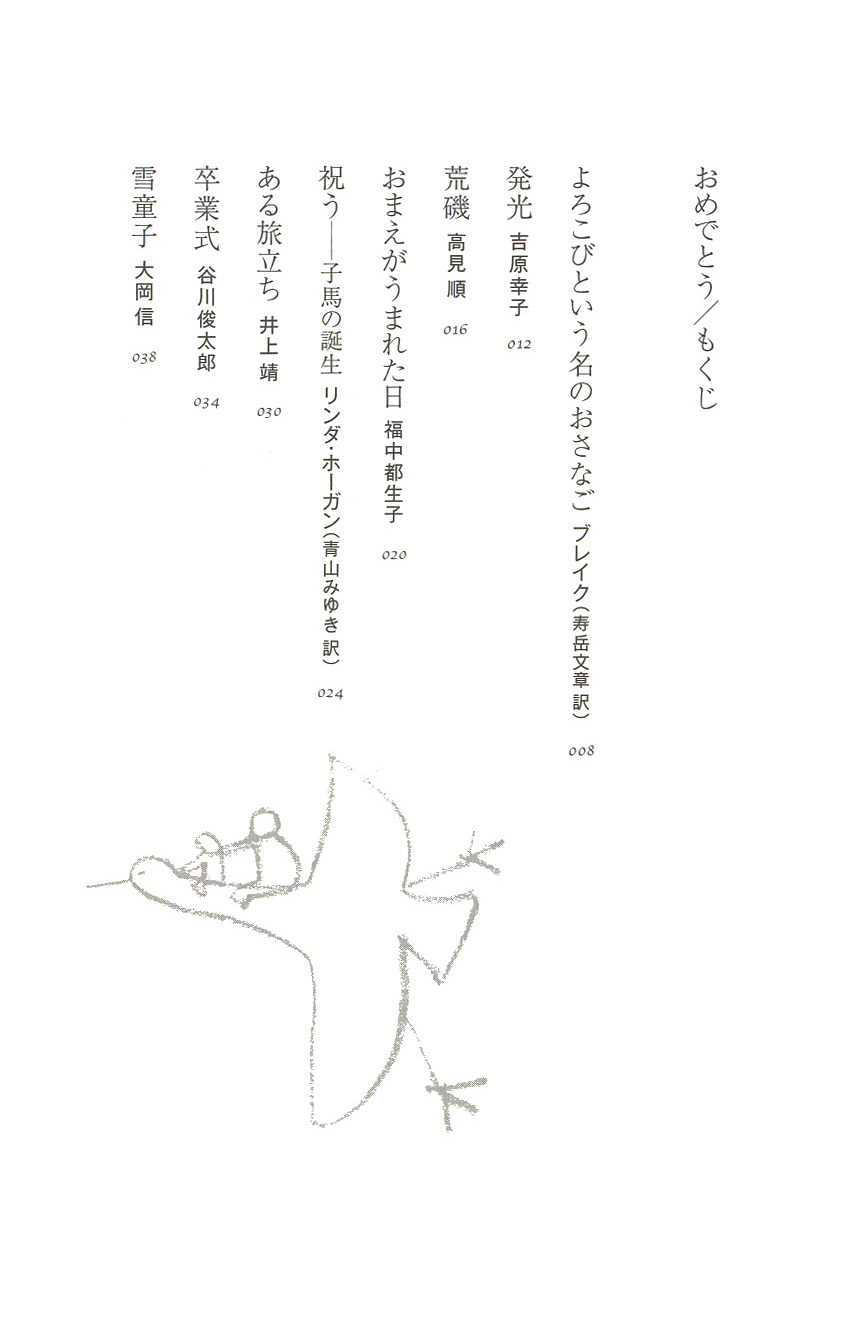 おめでとう／もくじ
よろこびという名のおさなご ブレイク（寿岳文章 訳） 008
発光 吉原幸子 012
荒磯 高見 順 016
おまえがうまれた日 福中都生子 020
祝う——子馬の誕生 リンダ・ホーガン（青山みゆき 訳） 024
ある旅立ち 井上 靖 030
卒業式 谷川俊太郎 034
雪童子 大岡 信 038